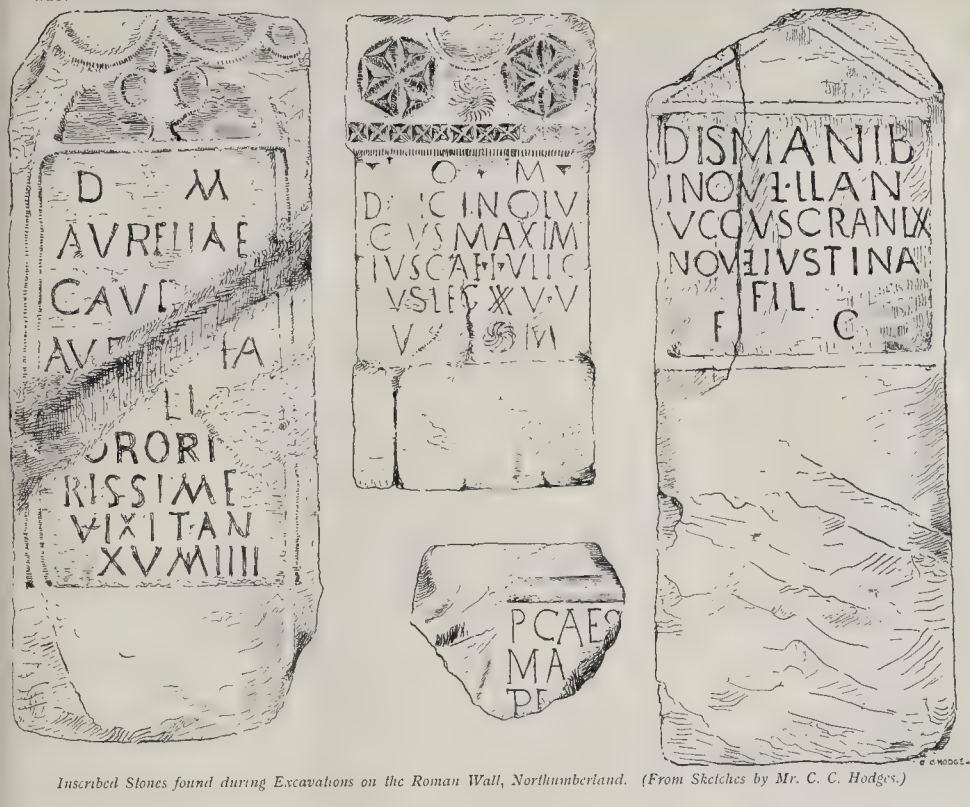 D M
AVRELIAE
CAVD
AV IA
LI
ORORI
RISSIME
VIXIT AN
XVMIIII
O M
D IC INOLV
C VS MAXIM
IVSCA VLIC
VSLEG XX V V
V M
P CAES
MA
PE
DISMANIB
INOVELLAN
VCCVSCRANIX
NOVELIVSTINA
FIL
F C
Inscribed Stones found during Excavations on the Roman Wall, Northumberland. (From Sketches by Mr. C. C. Hodges.)
C C HODGES